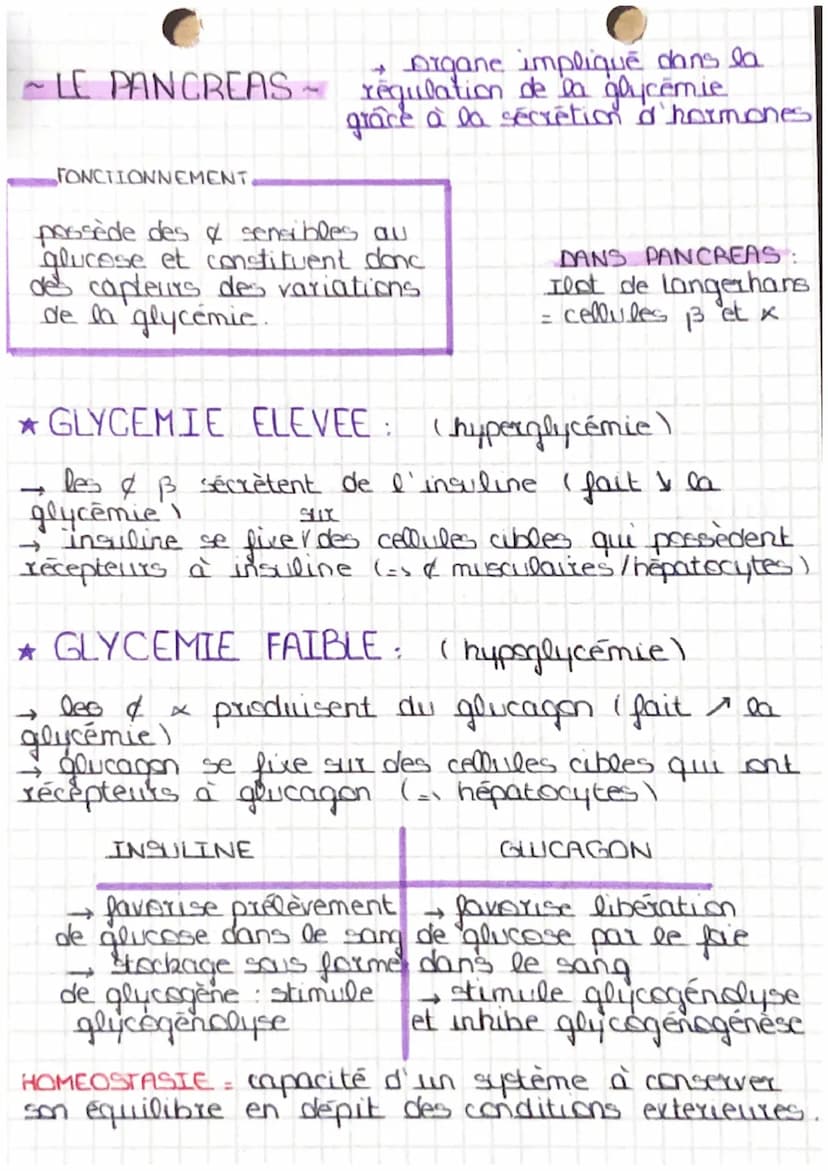 ~ LE PANCREAS ~
→ organe impliqué dans la
régulation de la glycémie
grâce à la sécrétion d'hormones
FONCTIONNEMENT
possède des ¢ sensibles au
glucose et constituent donc
des capteurs des variations
de la glycémie.
DANS PANCREAS :
Ilot de Langerhans
= cellules β et α
★ GLYCEMIE ELEVEE : (hyperglycémie)
→ les ¢ β sécrètent de l'insuline (fait ↘ la
glycémie)
→ insuline se fixe sur des cellules cibles qui possèdent
récepteurs à insuline (=> ¢ musculaires/hépatocytes)
★ GLYCEMIE FAIBLE : (hypoglycémie)
→ les ¢ α produisent du glucagon (fait ↗ la
glycémie)
→ glucagon se fixe sur des cellules cibles qui ont
récepteurs à glucagon (=> hépatocytes)
INSULINE
→ favorise prélèvement
de glucose dans le sang
→ stockage sous forme
de glycogène : stimule
glycogénolyse
GLUCAGON
→ favorise libération
de glucose par le foie
dans le sang
→ stimule glycogénolyse
et inhibe glycogénogénèse
HOMEOSTASIE = capacité d'un système à conserver
son équilibre en dépit des conditions exterieures.